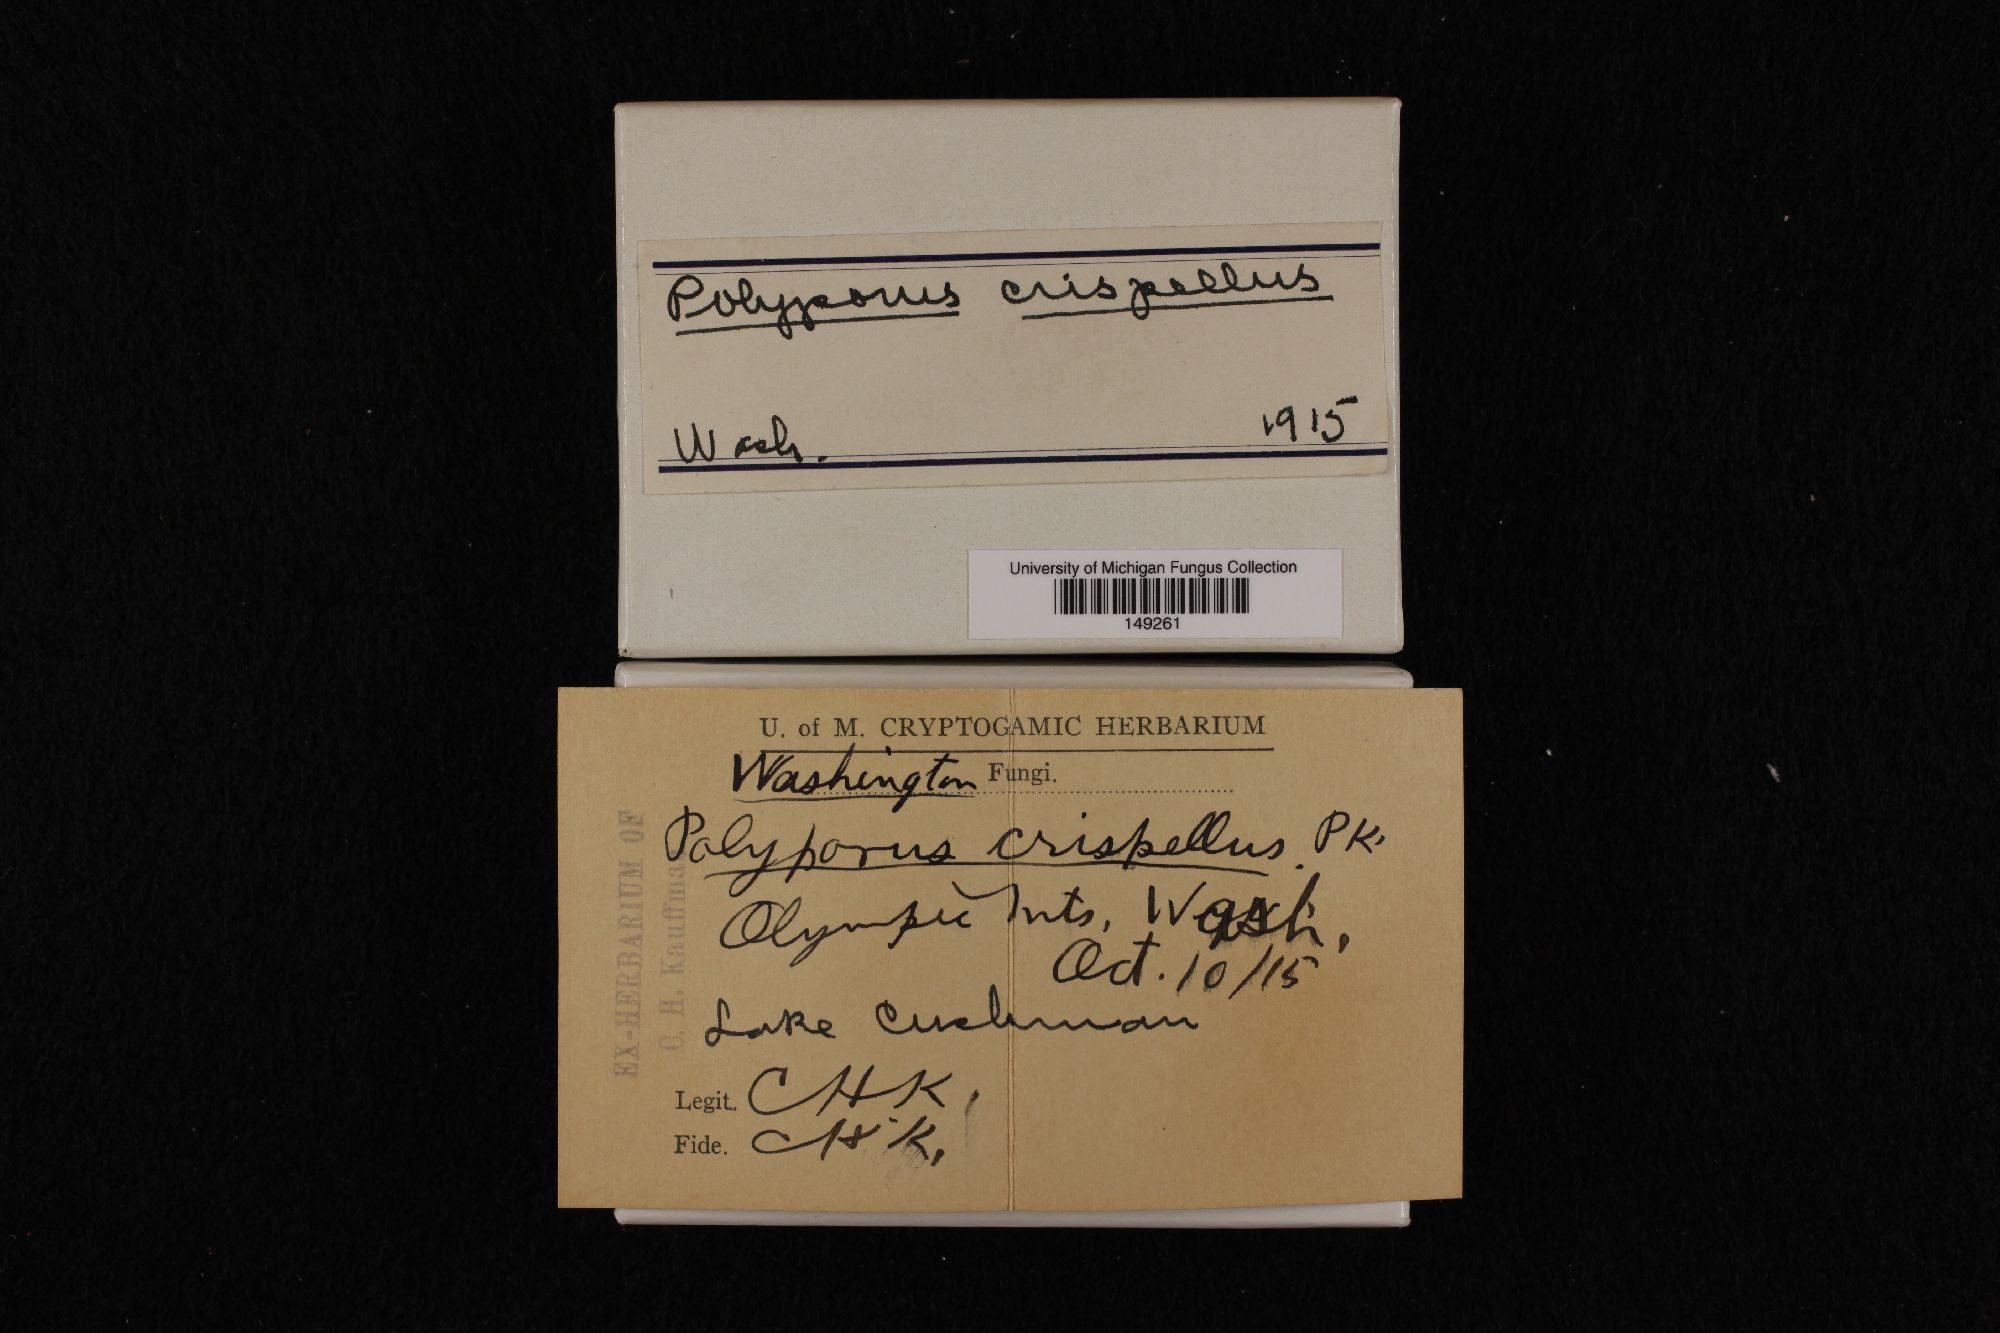 Polyporus crispellus
Wash. 1915
University of Michigan Fungus Collection
149261
U. of M. CRYPTOGAMIC HERBARIUM
Washington Fungi.
Polyporus crispellus. PK.
Olympic Mts, Wash,
Oct. 10/15
Lake Cushman
Legit. CHK,
Fide. CHK.
EX-HERBARIUM OF
C. H. Kauffma